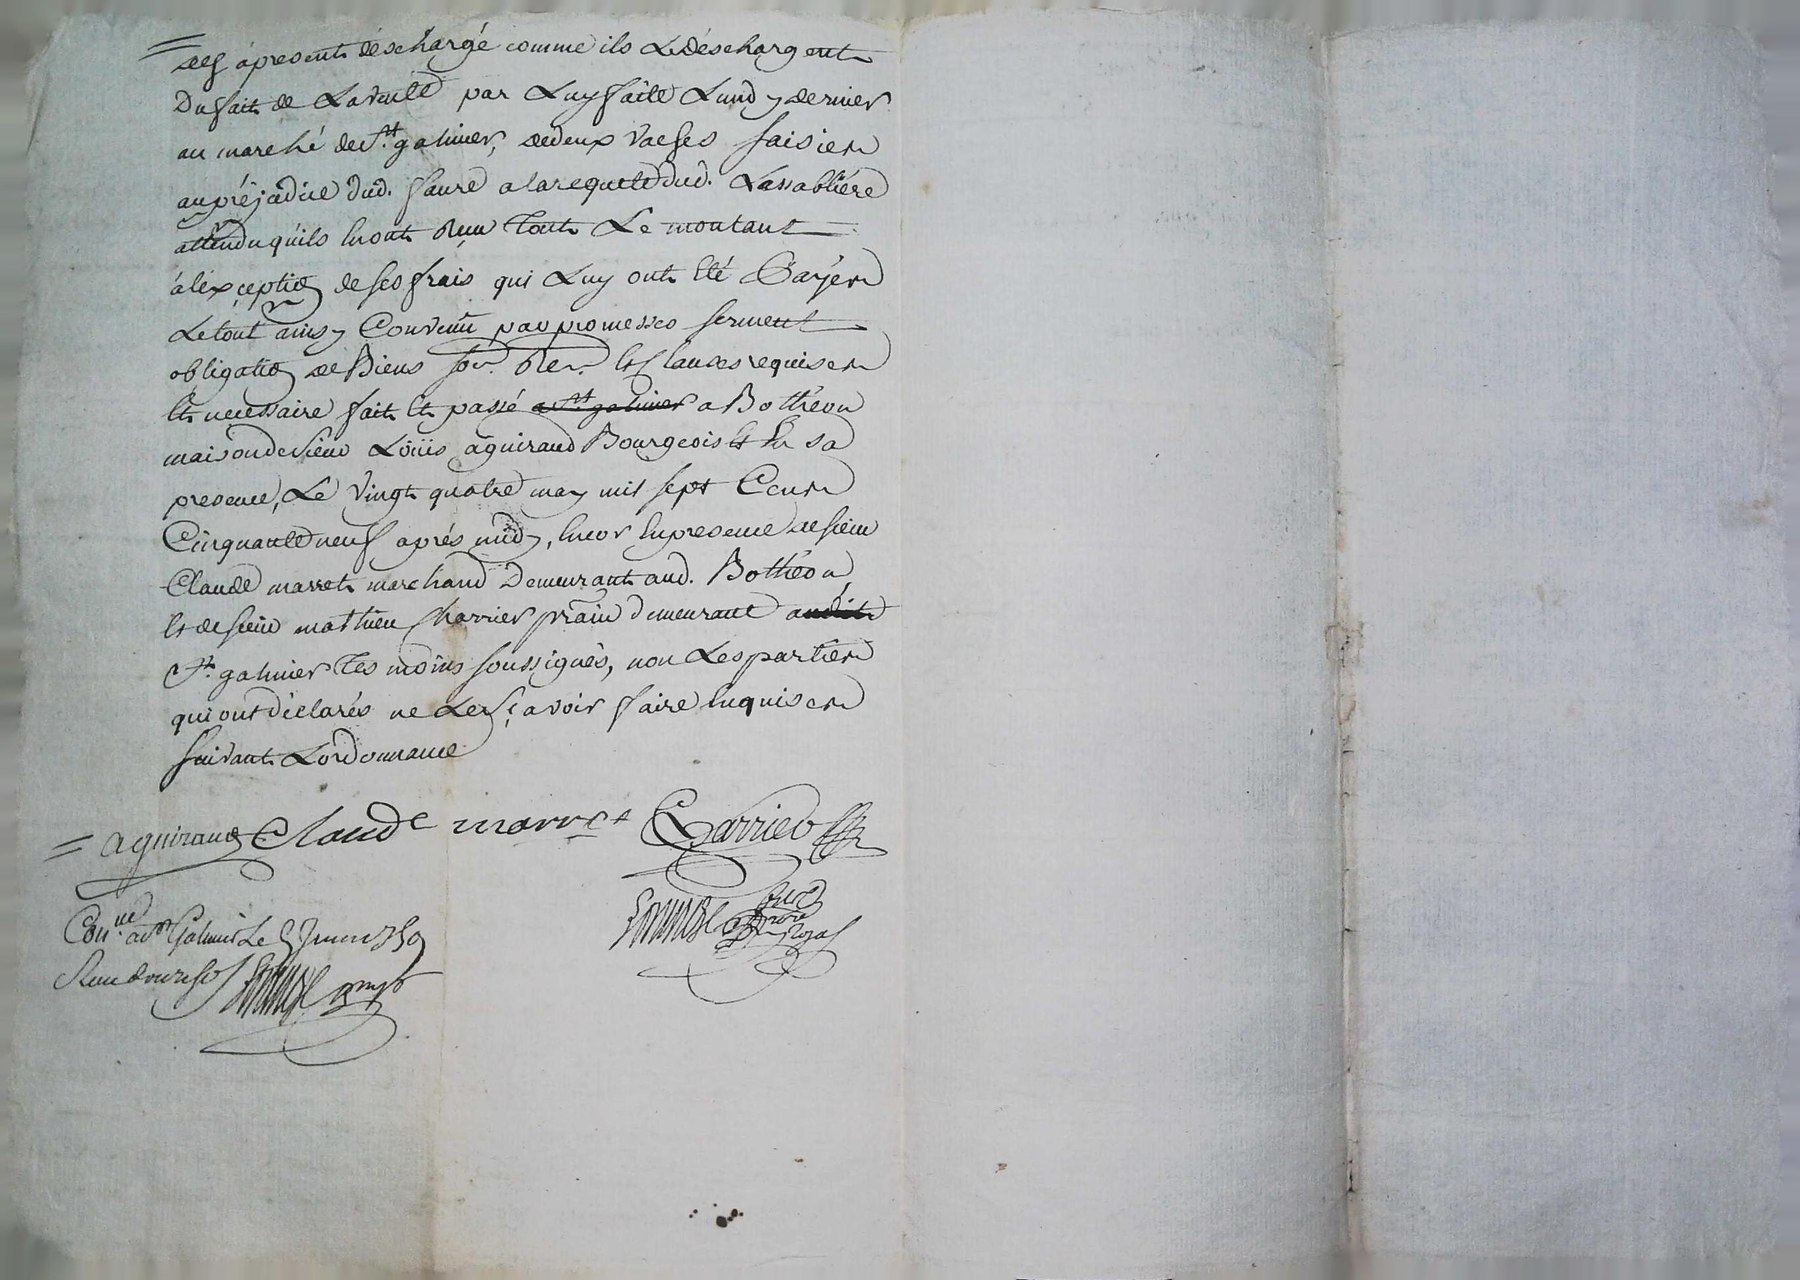 des apresent déschargé comme ils Le déschargent
Du fait de La vente par Luy faite Lundy dernier
au marché de St. galmier, de deux vaches saisies
au préjudice dud. faure a la requete dud. Lassabliére
attendu qu'ils en ont Reçu tout Le montant
a l'exception de ses frais qui Luy ont été Payés
Le tout ainsy Convenu par promesses serment
obligation de Biens Et Clauses requises
Et necessaire fait Et passé a St galmier a Bothéon
maison de sieur Loüis aguiraud Bourgeois Et En sa
presence, Le vingt quatre may mil sept Cens
Cinquante neuf aprés midy, Encor En presence de sieur
Claude marret marchand Demeurant aud. Bothéon
Et de sieur mathieu Charrier pratn demeurant audit
St. galmier temoins soussignés, non Les parties
qui ont déclarés ne Le sçavoir faire Enquises
suivant L'ordonnance
aguiraud Claude marret Carrier
not Royal
Con.lé a St Galmier Le 5 Juin 1759
Reçu douze sols